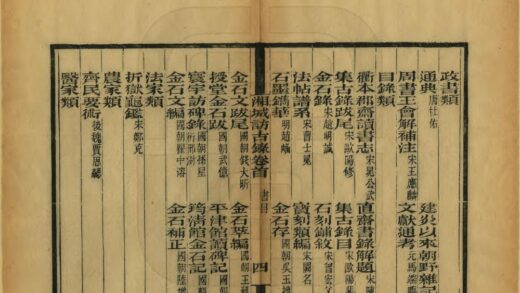 政書類
通典唐杜佑 建炎以來朝野雜
周書王會解補注宋王應麟 文獻通考元馬端
目錄類
衢本郡齋讀書志宋晁公武 直齋書錄解題
集古錄跋尾宋歐陽修 集古錄目宋歐陽
金石錄宋趙明誠 石刻鋪敘宋曾宏
法帖譜系宋曹士冕 寶刻類編宋闕名
石墨鐫華明趙崡 金石存國朝吳玉搢
湘城訪古錄卷首 書目 四
金石文跋尾國朝錢大昕 金石萃編國朝王
授堂金石跋國朝武億 平津館讀碑記國朝
寰宇訪碑錄國朝孫星衍邢澍 筠清館金石記國朝
金石文編國朝瞿中溶 金石補正國朝陸
法家類
折獄龜鑑宋鄭克
農家類
齊民要術後魏賈思勰
醫家類